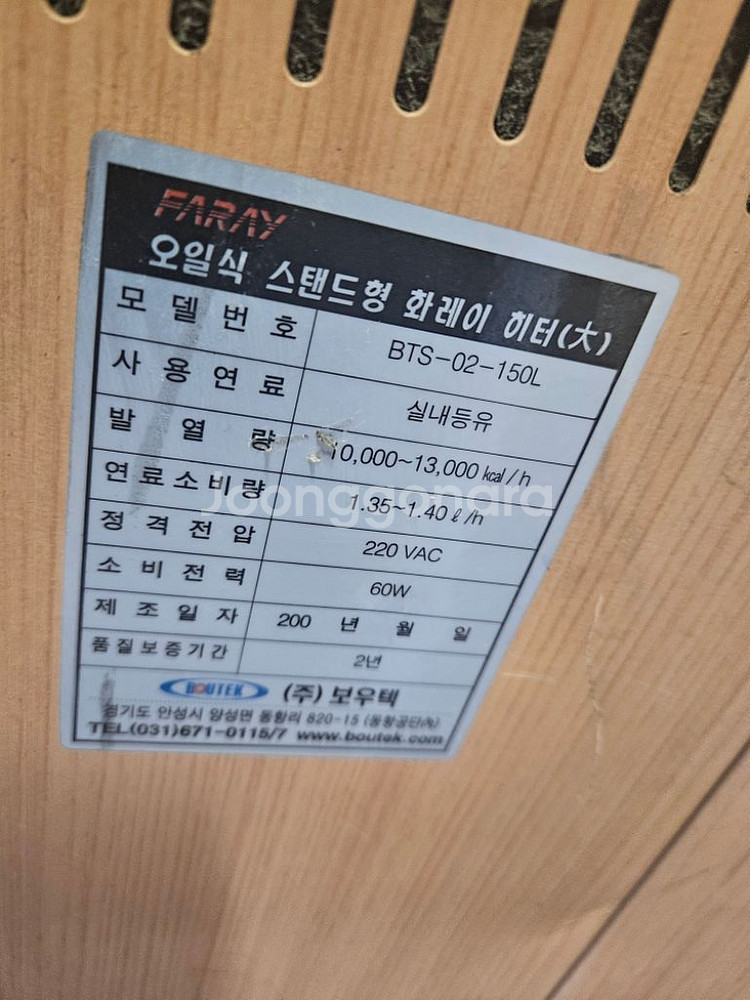 FARAY
오일식 스탠드형 화레이 히터(大)
모델번호 BTS-02-150L
사용연료 실내등유
발열량 10,000~13,000 kcal/h
연료소비량 1.35~1.40ℓ/h
정격전압 220 VAC
소비전력 60W
제조일자 200 년 월 일
품질보증기간 2년
BOUTEK (주)보우텍
경기도 안성시 양성면 동항리 820-15 (동항공단內)
TEL(031)671-0115/7 www.boutek.com
Joonggonara